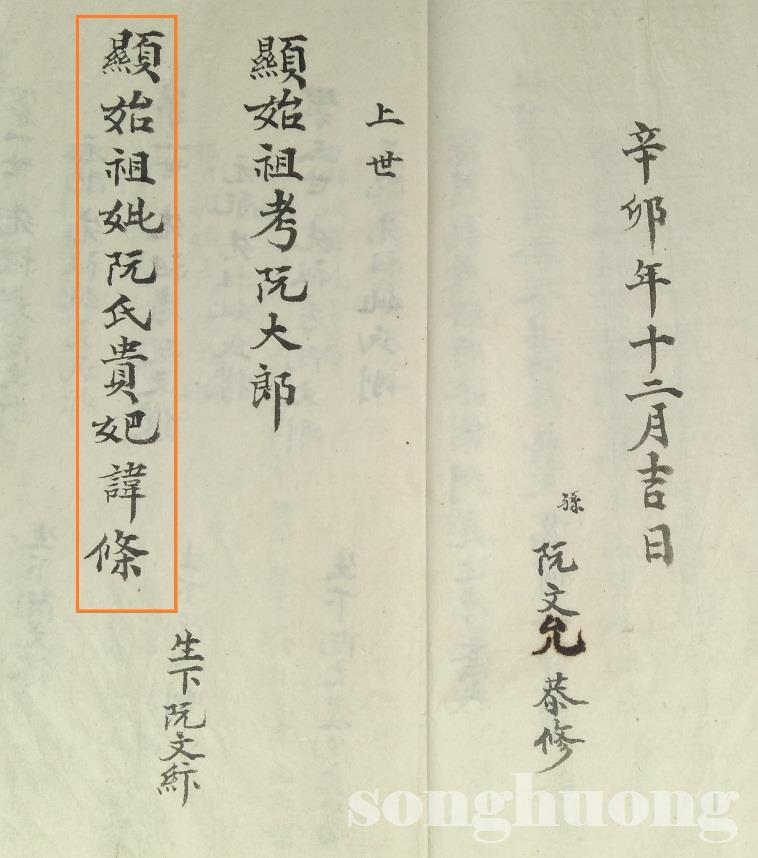 辛卯年十二月吉日
孫 阮文允 恭修
上世
顯始祖考阮大郎
顯始祖妣阮氏貴妃諱條
生下阮文緈
songhuong